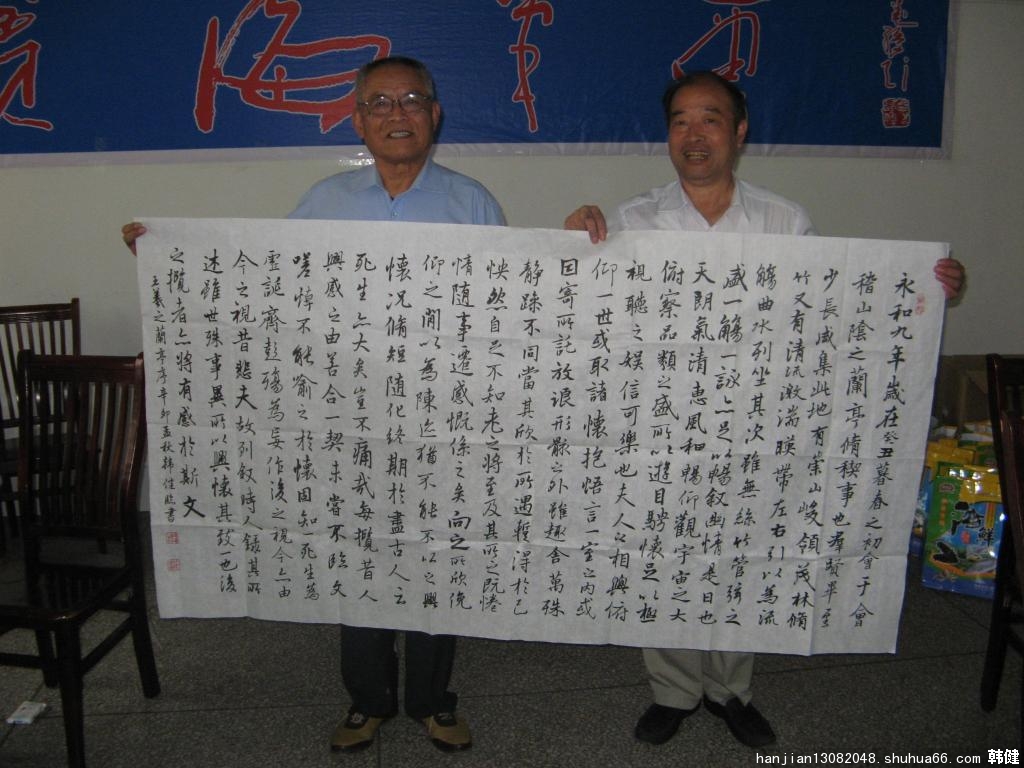 永和九年歲在癸丑暮春之初會于會
稽山陰之蘭亭脩稧事也羣賢畢至
少長咸集此地有崇山峻領茂林脩
竹又有清流激湍暎帶左右引以為流
觴曲水列坐其次雖無絲竹管弦之
盛一觴一詠亦足以暢敘幽情是日也
天朗氣清惠風和暢仰觀宇宙之大
俯察品類之盛所以遊目騁懷足以極
視聽之娛信可樂也夫人之相與俯
仰一世或取諸懷抱悟言一室之內或
因寄所託放浪形骸之外雖趣舍萬殊
靜躁不同當其欣於所遇暫得於己
怏然自足不知老之將至及其所之既惓
情隨事遷感慨係之矣向之所欣俛
仰之閒以為陳迹猶不能不以之興
懷況脩短隨化終期於盡古人云
死生亦大矣豈不痛哉每攬昔人
興感之由若合一契未嘗不臨文
嗟悼不能喻之於懷固知一死生為
虛誕齊彭殤為妄作後之視今亦由
今之視昔悲夫故列敘時人錄其所
述雖世殊事異所以興懷其致一也後
之攬者亦將有感於斯文
王羲之蘭亭序辛卯孟秋韓健臨書
海鲜
hanjian13082048.shuhua66.com 韩健